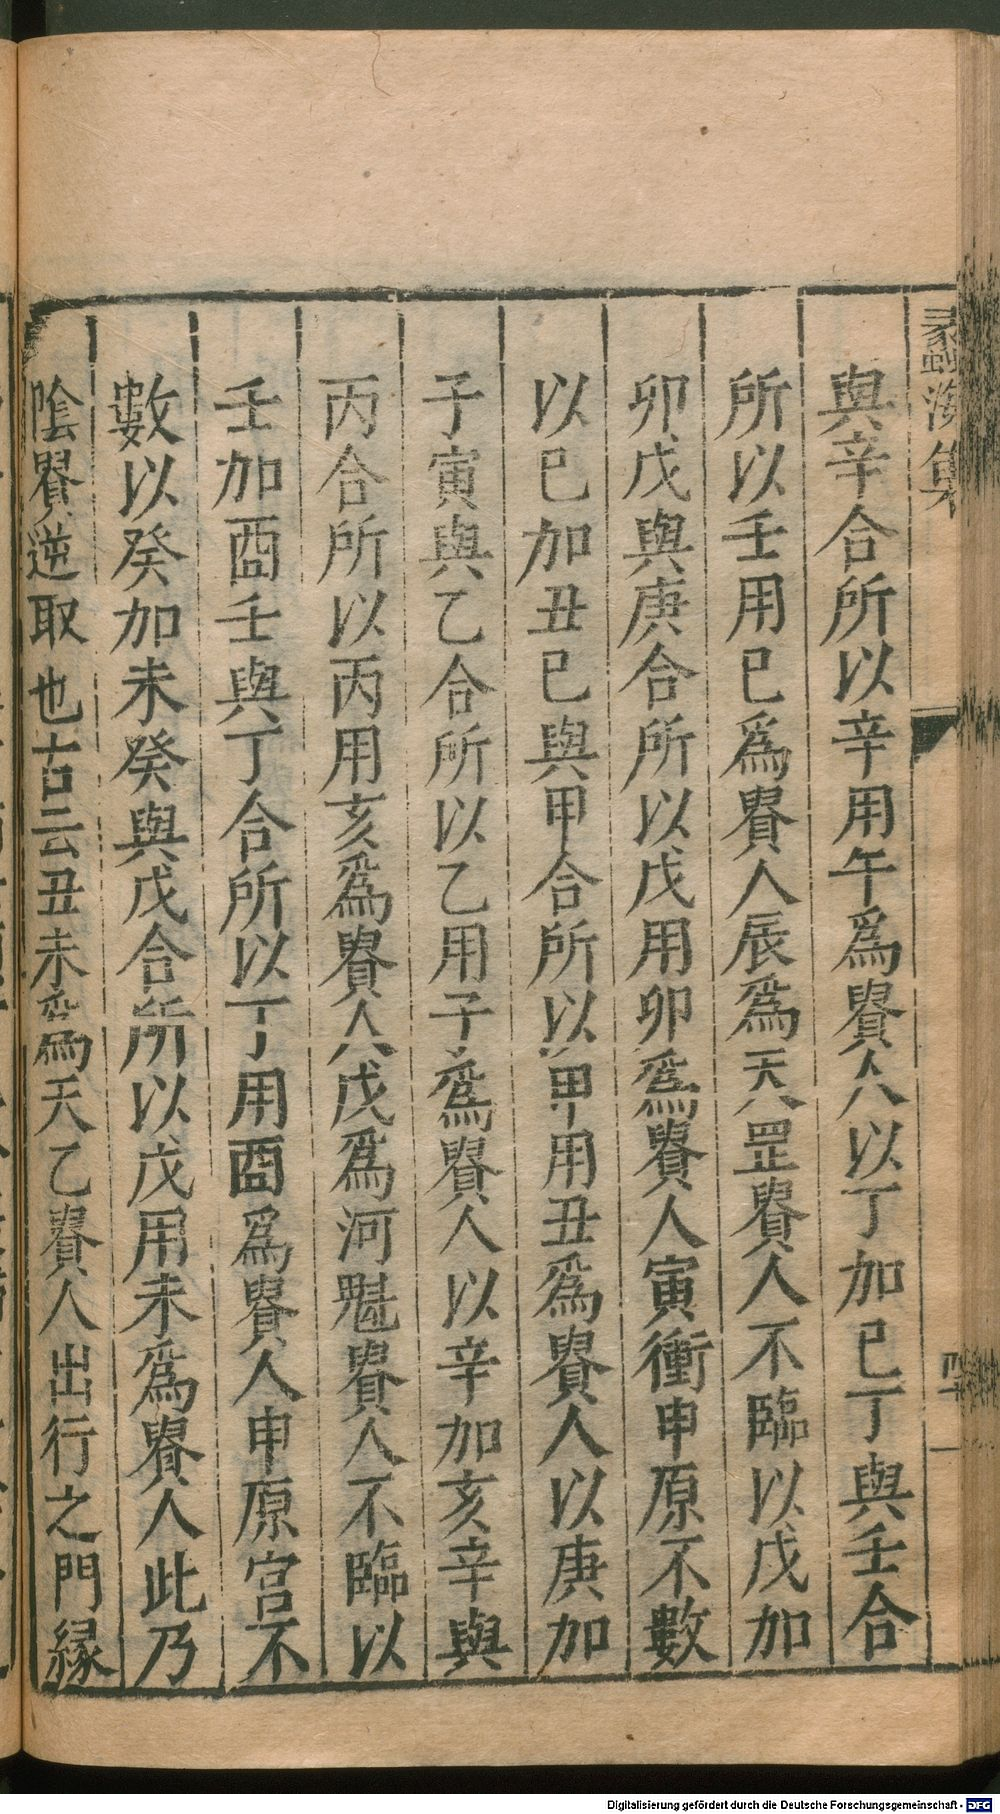 蠡海集
與辛合所以辛用午爲貴人以丁加巳丁與壬合
所以壬用巳爲貴人辰爲天罡貴人不臨以戊加
卯戊與庚合所以戊用卯爲貴人寅衝申原不數
以巳加丑巳與甲合所以甲用丑爲貴人以庚加
子寅與乙合所以乙用子爲貴人以辛加亥辛與
丙合所以丙用亥爲貴人戊爲河魁貴人不臨以
壬加酉壬與丁合所以丁用酉爲貴人申原宮不
數以癸加未癸與戊合所以戊用未爲貴人此乃
陰貴逆取也古云丑未爲天乙貴人出行之門緣
Digitalisierung gefördert durch die Deutsche Forschungsgemeinschaft - DFG